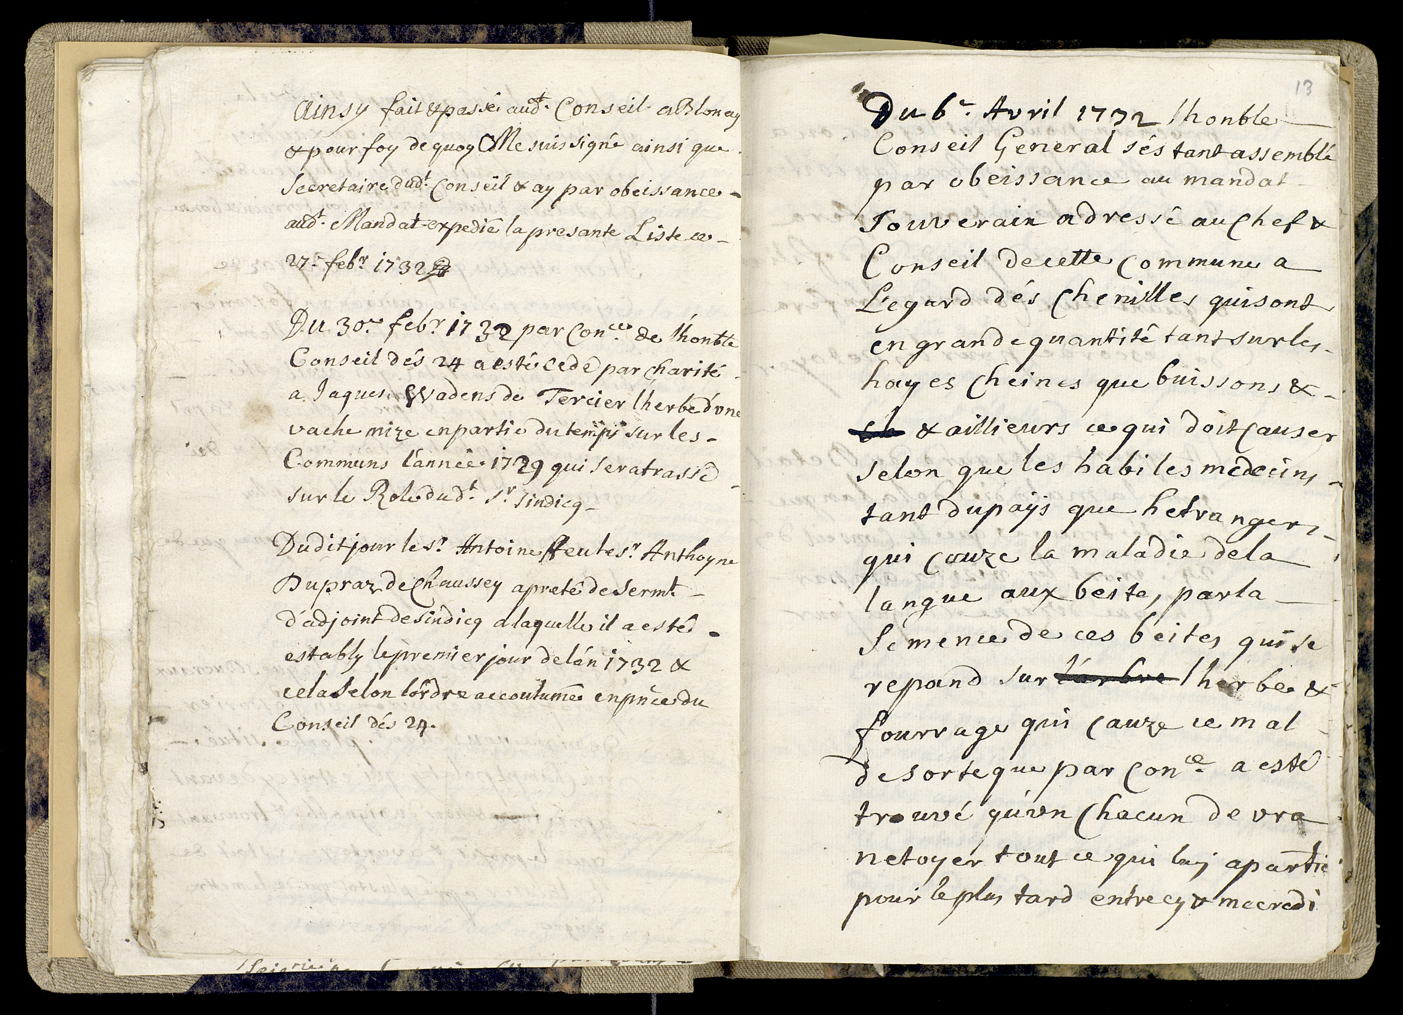 Ainsy fait & passé aud.t Conseil a Blonay
& pour foy de quoy Me suis signé ainsi que
Secretaire dud.t Conseil & ay par obeissance
aud.t Mandat expedié la presante Liste ce
27.e feb.r 1732
Du 30.e feb.r 1732 par Con.ce de l'honble
Conseil dés 24 a esté cedé par charité
a Jaques Wadens de Tercier lherbe d'vne
vache mize en partie du temps sur les
Communs l'année 1729 qui sera trassé
sur le Role dud.t S.r Sindicq
Dudit jour le S.r Antoine ffeu le S.r Anthoyne
Dupraz de Chaussey a preté de Sermt
d'adjoint de Sindicq a laquelle il a esté
estably le premier jour de lén 1732 &
cela Selon lordre accoutumé en pñce du
Conseil dés 24.
13
Du 6.e Avril 1732 lhonble
Conseil General sés tant assemblé
par obeissance au mandat
Souverain adressé au Chef &
Conseil de cette Commune a
L'egard dés Chenilles qui sont
en grande quantité tant sur les
hayes Cheines que buissons &
& aillieurs ce qui doit causer
selon que les habiles médecins
tant du paÿs que hetrangers
qui cauze la maladie de la
langue aux beste, par la
Semence de ces béites qui se
repand sur l'arbre lherbe &
fourrage qui cauze ce mal
desorte que par Con.ce a esté
trouvé qu'vn Chacun devra
netoyer tout ce qui luy apartie
pour le plus tard entrecy & mecredi